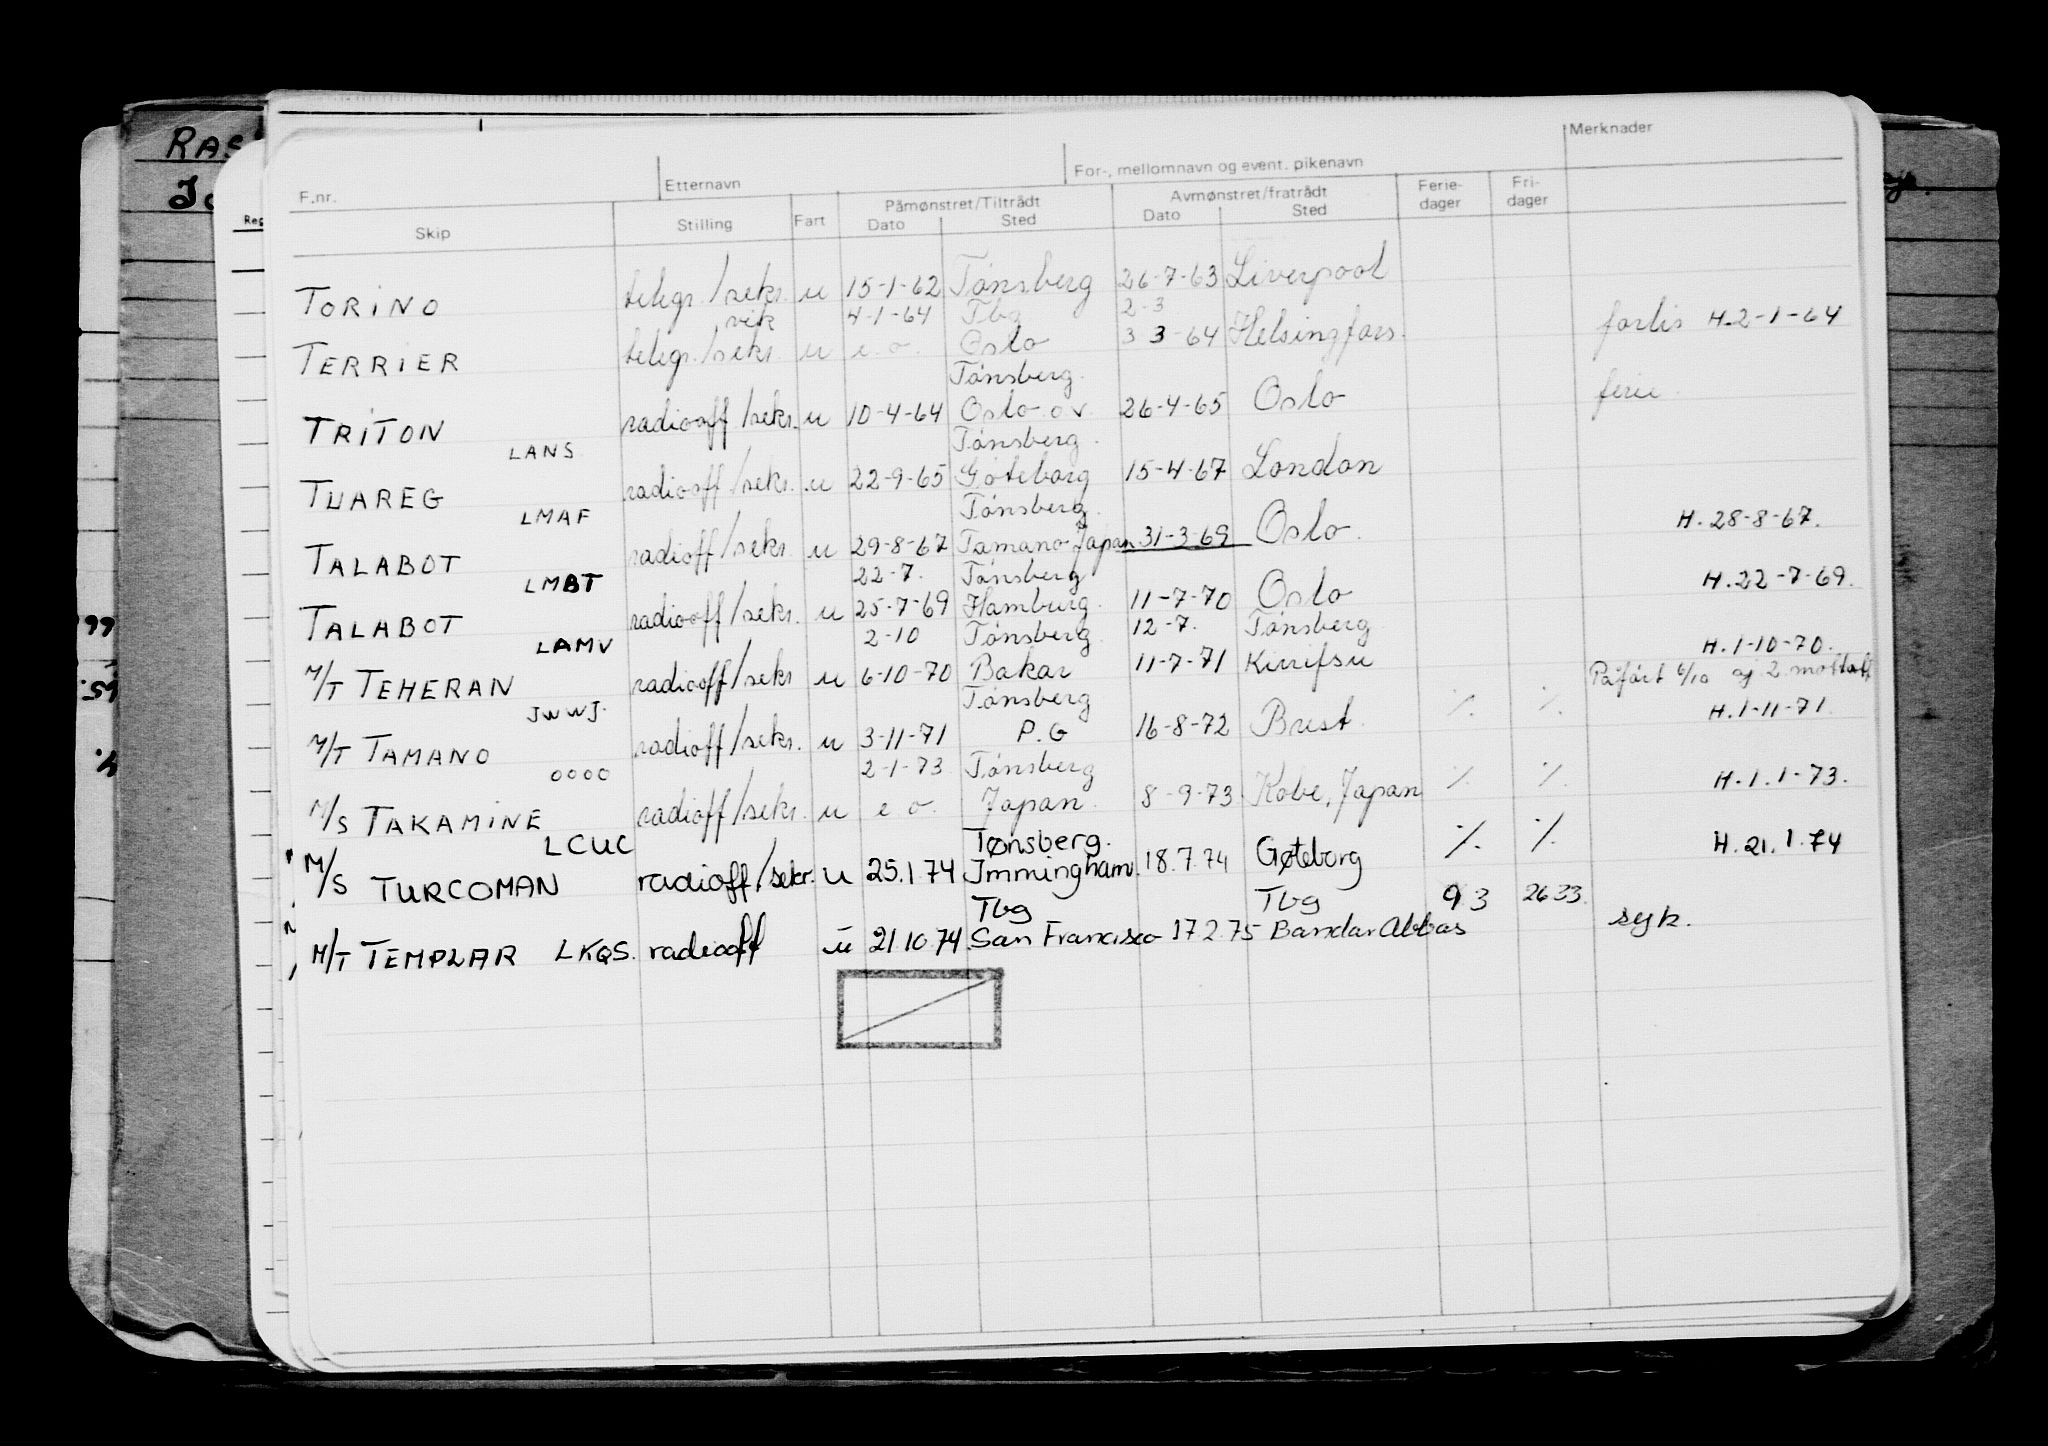 RAS
Merknader
F.nr. Etternavn For-, mellomnavn og event. pikenavn
Skip Stilling Fart Påmønstret/Tiltrådt Dato Sted Avmønstret/fratrådt Dato Sted Ferie-dager Fri-dager
Reg
TORINO telegr./sekr. u 15-1-62 Tönsberg 26-7-63 Liverpool
vik 4-1-64 Tbg 2-3
TERRIER telegr./sekr. u e.o. Oslo 3 3-64 Helsingfors. forlis H.2-1-64
Tönsberg.
TRITON radiooff/sekr. u 10-4-64 Oslo o v 26-4-65 Oslo ferie
LANS Tönsberg.
TUAREG radiooff/sekr. u 22-9-65 Göteborg 15-4-67 London
LMAF Tönsberg.
TALABOT radioff/sekr. u 29-8-67 Tamano-Japan 31-3-69 Oslo. H. 28-8-67.
LMBT 22-7. Tönsberg
TALABOT radiooff/sekr. u 25-7-69 Hamburg. 11-7-70 Oslo H.22-7-69.
LAMV 2-10 Tönsberg 12-7. Tönsberg
M/T TEHERAN radiooff/sekr u 6-10-70 Bakar 11-7-71 Kiirifsu H.1-10-70.
Påført 6/10 2. mottatt
JWWJ. Tönsberg
M/T TAMANO radioff/sekr. u 3-11-71 P.G 16-8-72 Brest. ٪ ٪ H.1-11-71.
0000 2-1-73 Tönsberg
M/S TAKAMINE radioff/sekr. u e o. Japan. 8-9-73 Kobe, Japan ٪ ٪ H.1.1-73.
LCUC Tønsberg.
M/S TURCOMAN radioff./sekr. u 25.1 74 Immingham. 18.7.74 Gøteborg ٪ ٪ H.21.1.74
Tbg Tbg 93 26 33.
M/T TEMPLAR LKQS. radiooff u 21.10.74. San Francisco 17.2.75 Bandar Abbas syk.